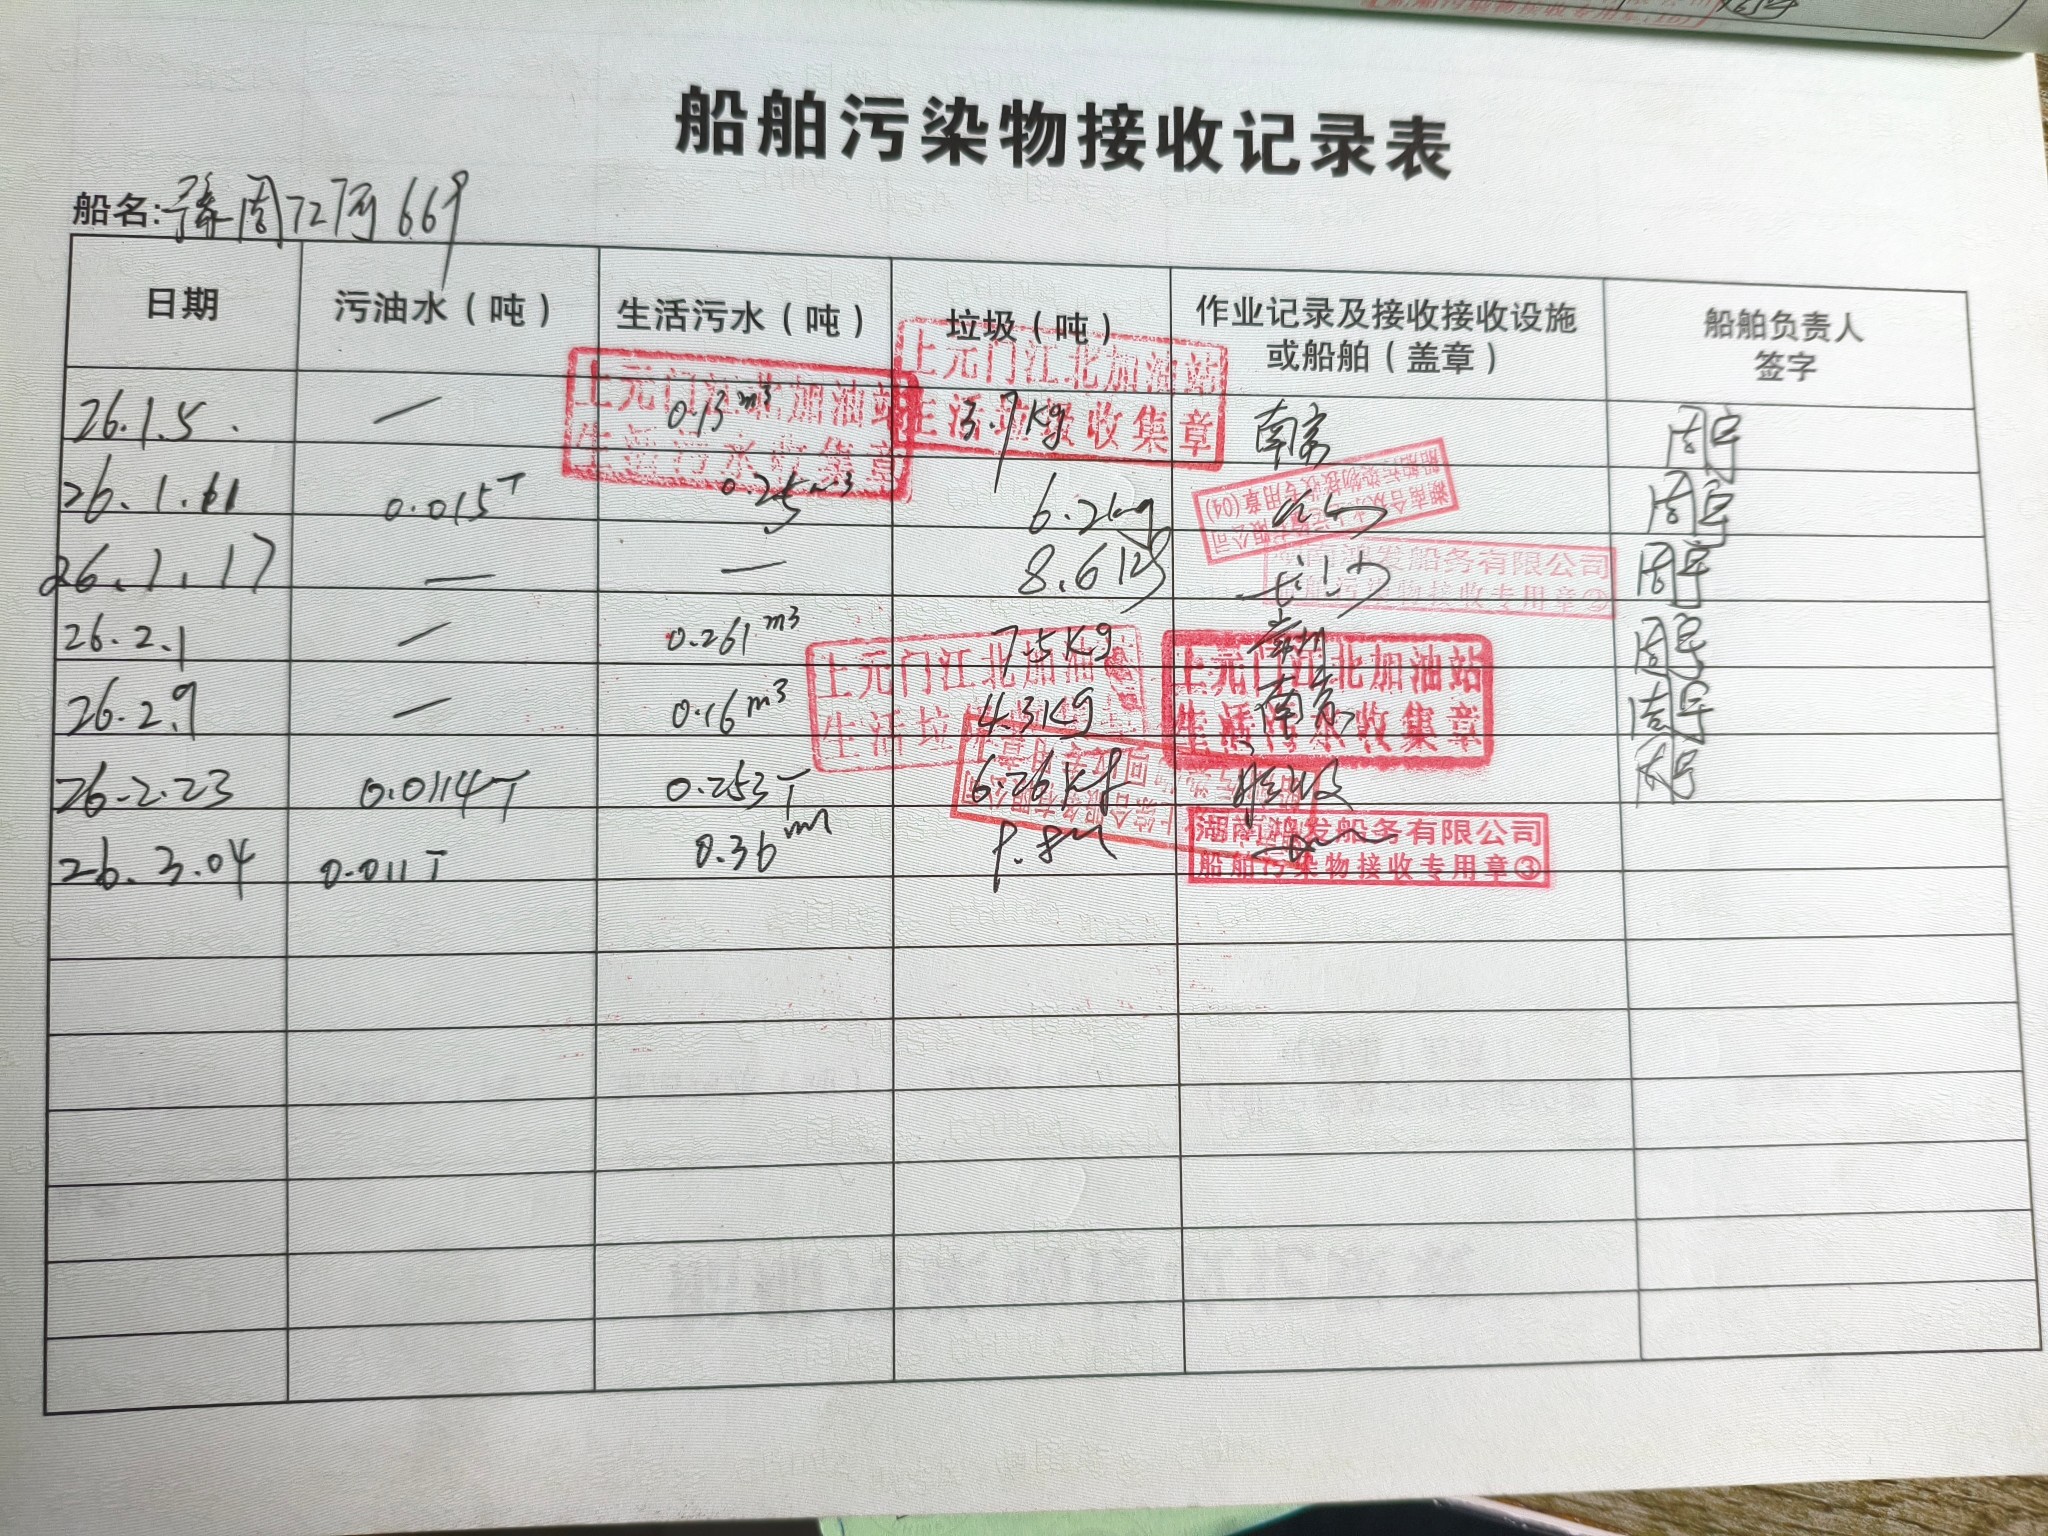 船舶污染物接收记录表
船名: 周 669
日期 污油水（吨） 生活污水（吨） 垃圾（吨） 作业记录及接收接收设施或船舶（盖章） 船舶负责人签字
26.1.5. — 0.13m³ 3.7Kg 南京
上元门江北加油站
生活污水收集章
上元门江北加油站
生活垃圾收集章
26.1.11 0.015T 0.25m³ 6.2kg
船舶污染物接收专用章(04)
26.1.17 — — 8.6kg 长沙
湖南鸿发船务有限公司
船舶污染物接收专用章②
26.2.1 — 0.261m³ 7.5Kg
26.2.9 — 0.16m³ 4.3Kg 南京
上元门江北加油站
生活垃圾
上元门江北加油站
生活污水收集章
26.2.23 0.0114T 0.253T 6.26Kg
26.3.04 0.011T 0.36
湖南鸿发船务有限公司
船舶污染物接收专用章③